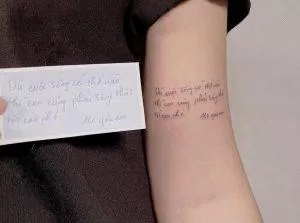 Dù cuộc sống có thế nào
thì con cũng phải sống thật
tốt con nhé
Mẹ yêu con
Dù cuộc sống có thế nào
thì con cũng phải sống thật
tốt con nhé
Mẹ yêu con